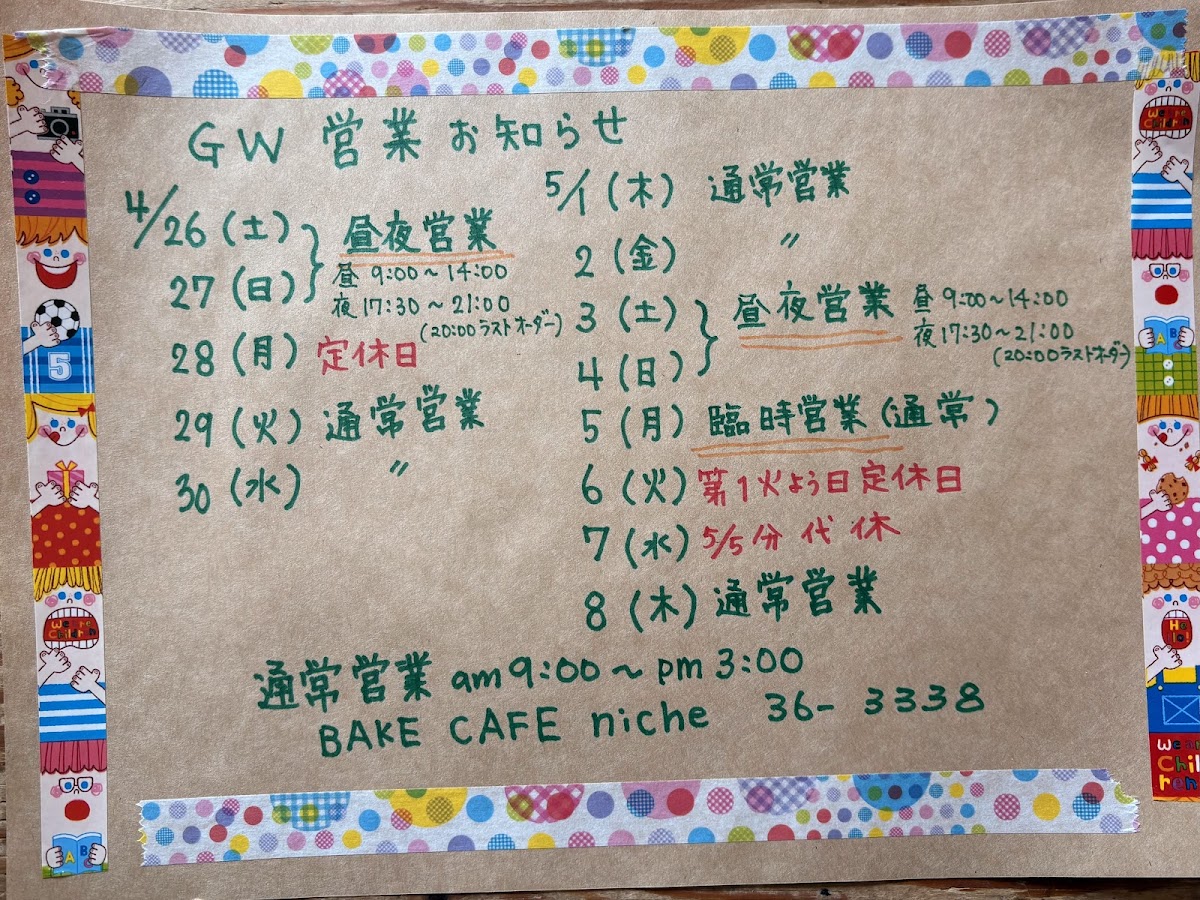 GW 営業お知らせ
4/26(土) 昼夜営業
27(日) 昼 9:00～14:00
夜 17:30～21:00
(20:00ラストオーダー)
28(月) 定休日
29(火) 通常営業
30(水) 〃
5/1(木) 通常営業
2(金) 〃
3(土) 昼夜営業 昼 9:00～14:00
夜 17:30～21:00
(20:00ラストオーダー)
4(日)
5(月) 臨時営業(通常)
6(火) 第1火よう日定休日
7(水) 5/5分 代休
8(木) 通常営業
通常営業 am9:00～pm3:00
BAKE CAFE niche 36-3338
5
We are Children
A B
We are Children
A B
Hello!
We are Children